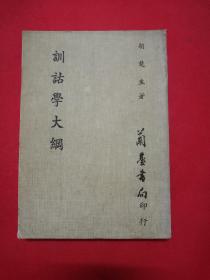 胡楚生著
訓詁學大綱
蘭臺書局印行